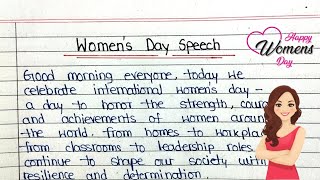 Women's Day Speech
Happy
Womens
Day
Good morning everyone, today we
celebrate international women's day -
a day to honor the strength,
and achievements of women
the world. from homes to
from classrooms to leadership roles
continue to shape our society with
resilience and determination.